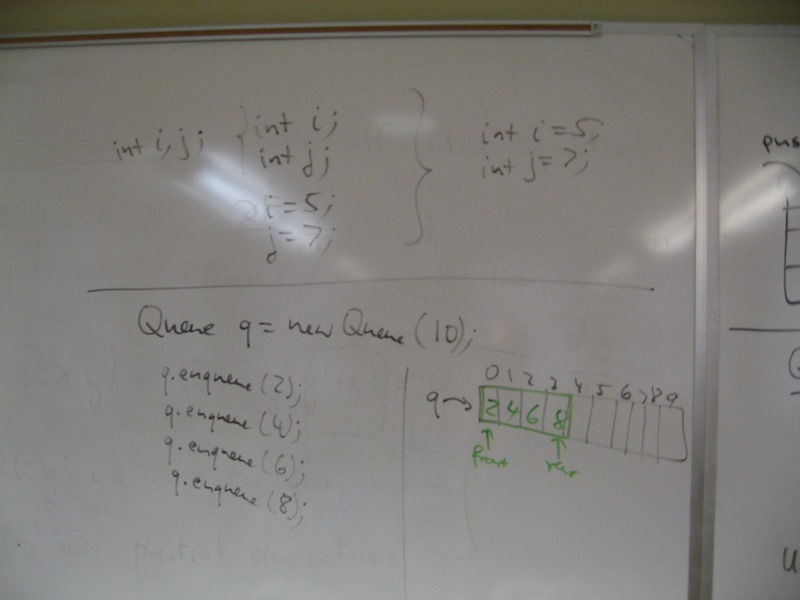 int i, j;
int i;
int j;
i=5;
j=7;
int i=5;
int j=7;
Queue q = new Queue (10);
q.enqueue (2);
q.enqueue (4);
q.enqueue (6);
q.enqueue (8);
0 1 2 3 4 5 6 7 8 9
q → 2 4 6 8
front rear